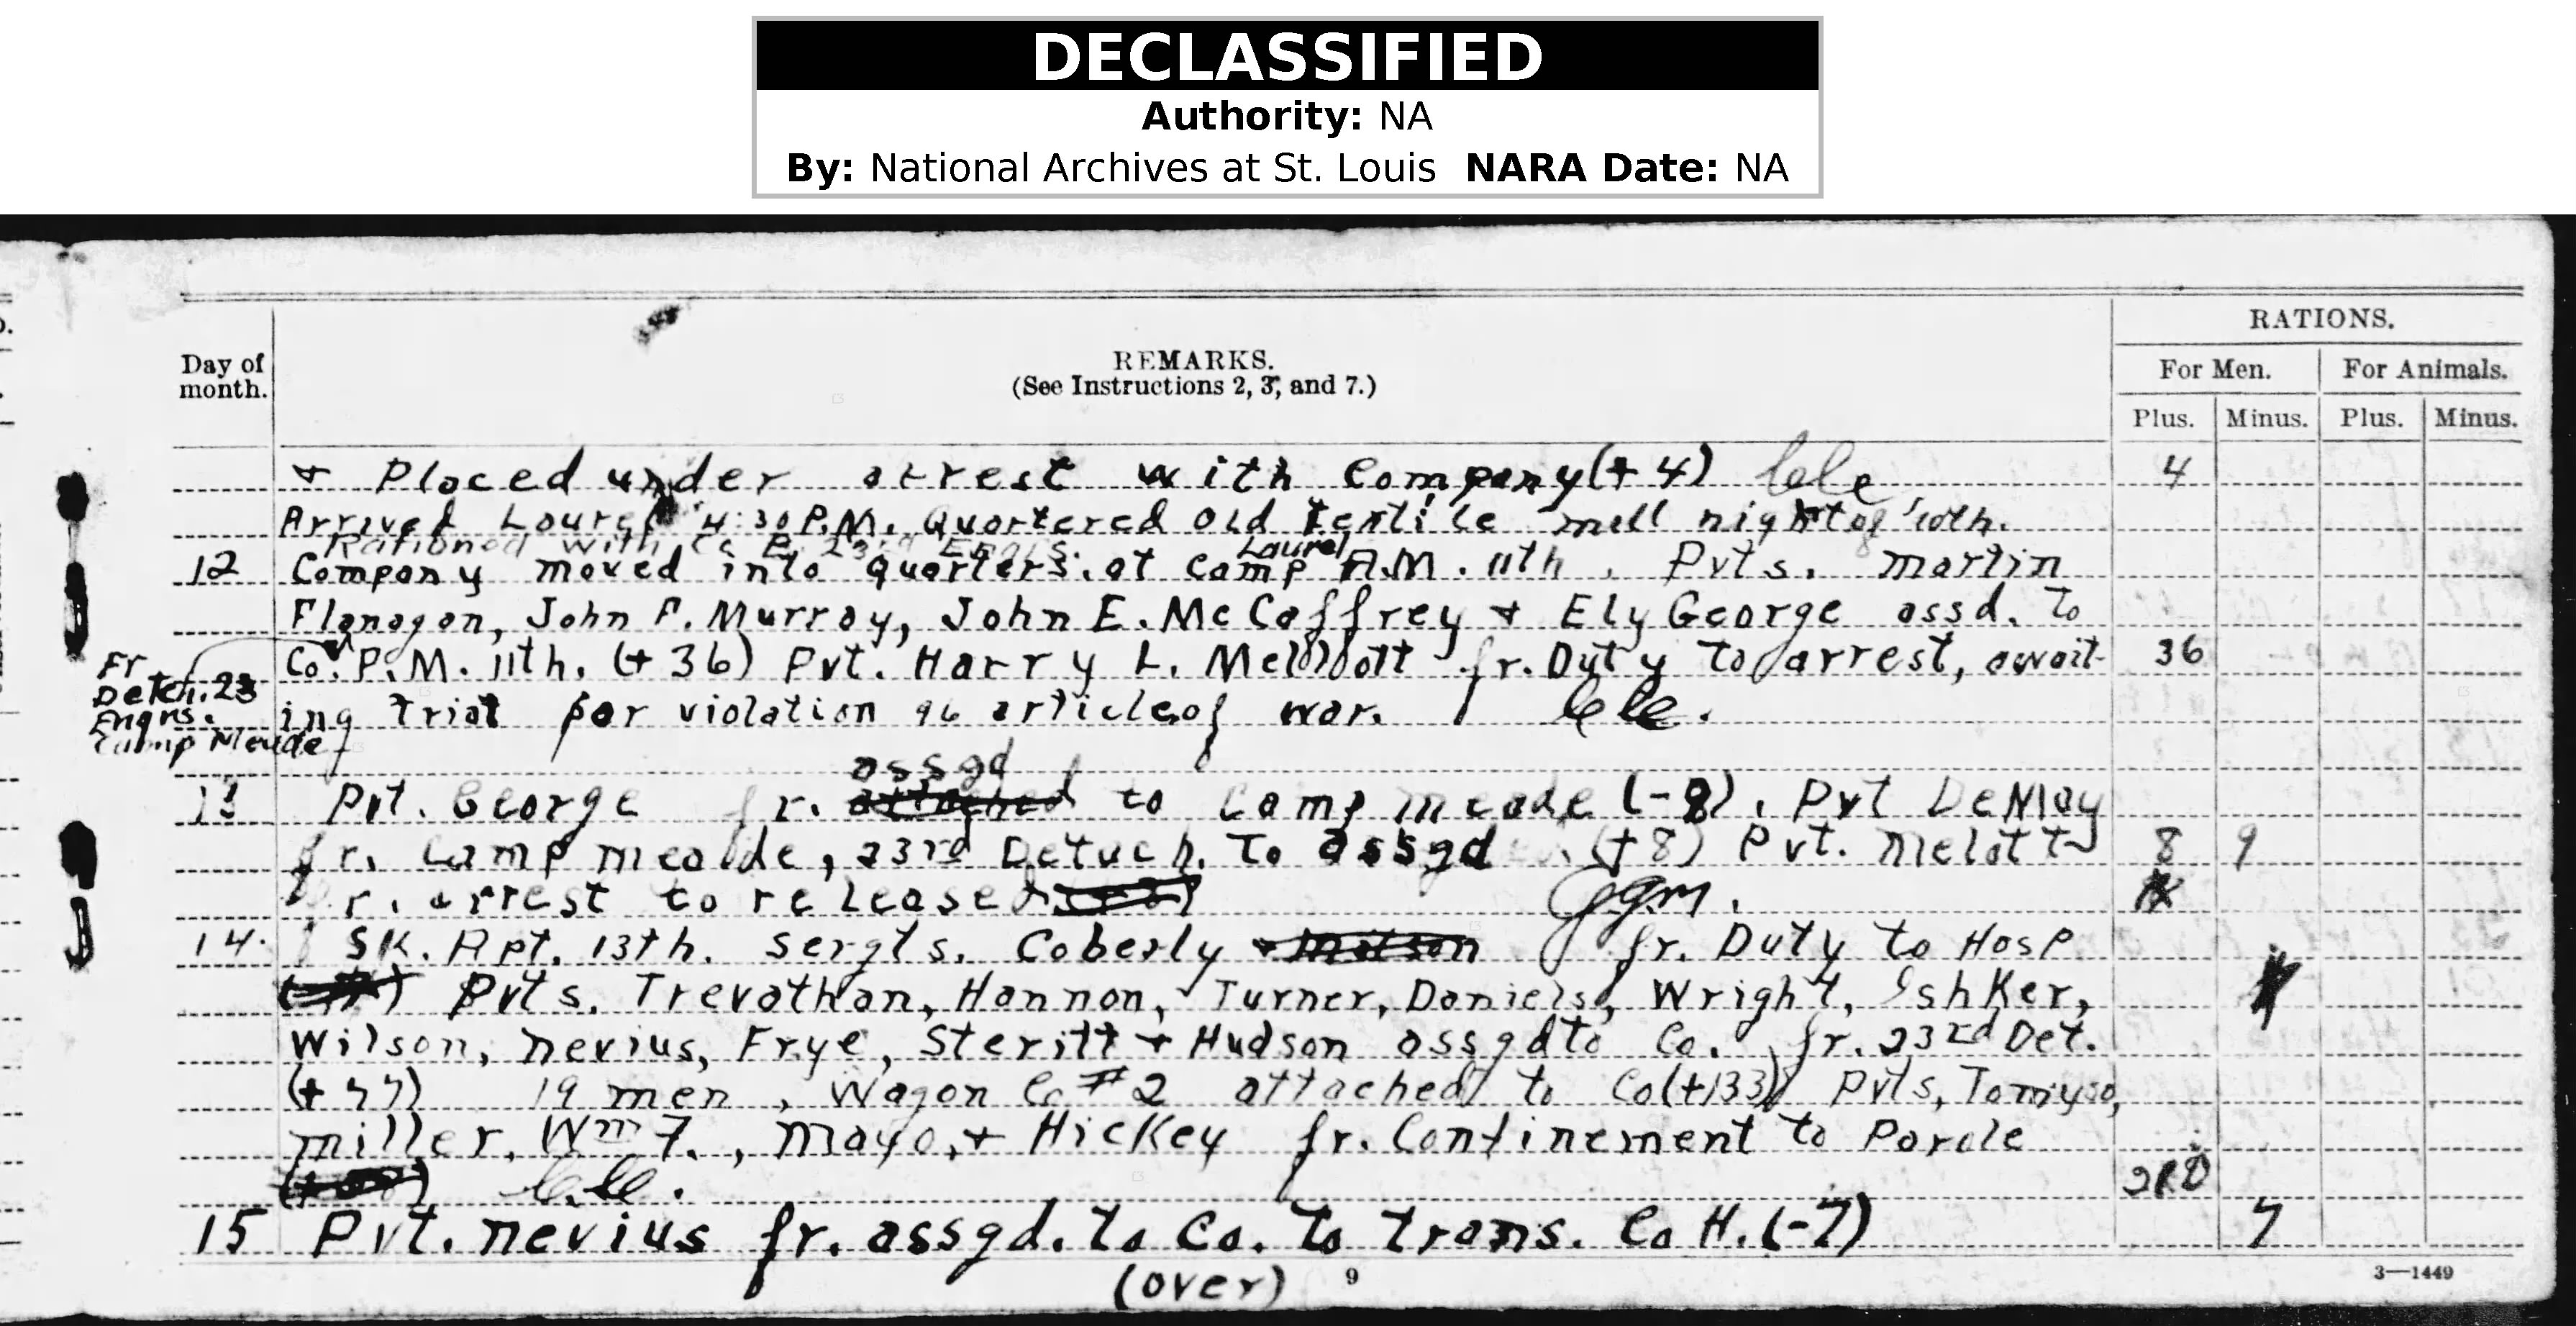 DECLASSIFIED
Authority: NA
By: National Archives at St. Louis NARA Date: NA
RATIONS.
Day of month.
REMARKS.
(See Instructions 2, 3, and 7.)
For Men. For Animals.
Plus. Minus. Plus. Minus.
+ Placed under arrest with Company (+4) 4
Arrived Laurel 4:30 P.M. Quartered old textile mill night of 10th.
Rationed with Co E, 23rd Engrs.
Laurel
12 Company moved into quarters. at camp A.M. 11th. Pvts. Martin
Flanagan, John F. Murray, John E. McCaffrey + Ely George assd. To
Co. P.M. 11th. (+36) Pvt. Harry L. Mellott fr. Duty To arrest, await- 36
Fr
Detch. 23
Engrs.
Camp Meade
ing trial for violation 96 article of war.
assgd
13 Pvt. George fr. attached to Camp Meade (-8). Pvt DeMay
fr. Camp Meade, 23rd Detach. To assgd (+8) Pvt. Melott 8 9
fr. arrest to released
14. SK. Rpt. 13th. Sergts. Coberly + Matson fr. Duty to Hosp
Pvts. Trevathan, Hannon, Turner, Daniels, Wright, Ishker,
Wilson, Nevius, Frye, Steritt + Hudson assgd to Co. fr. 23rd Det.
(+77) 19 men, Wagon Co #2 attached to Co (+133) Pvts,
Miller, Wm F., Mayo, + Hickey fr. Confinement to Parole
15 Pvt. Nevius fr. assgd. to Co. To trans. Co H. (-7) 7
(over) 9 3—1449